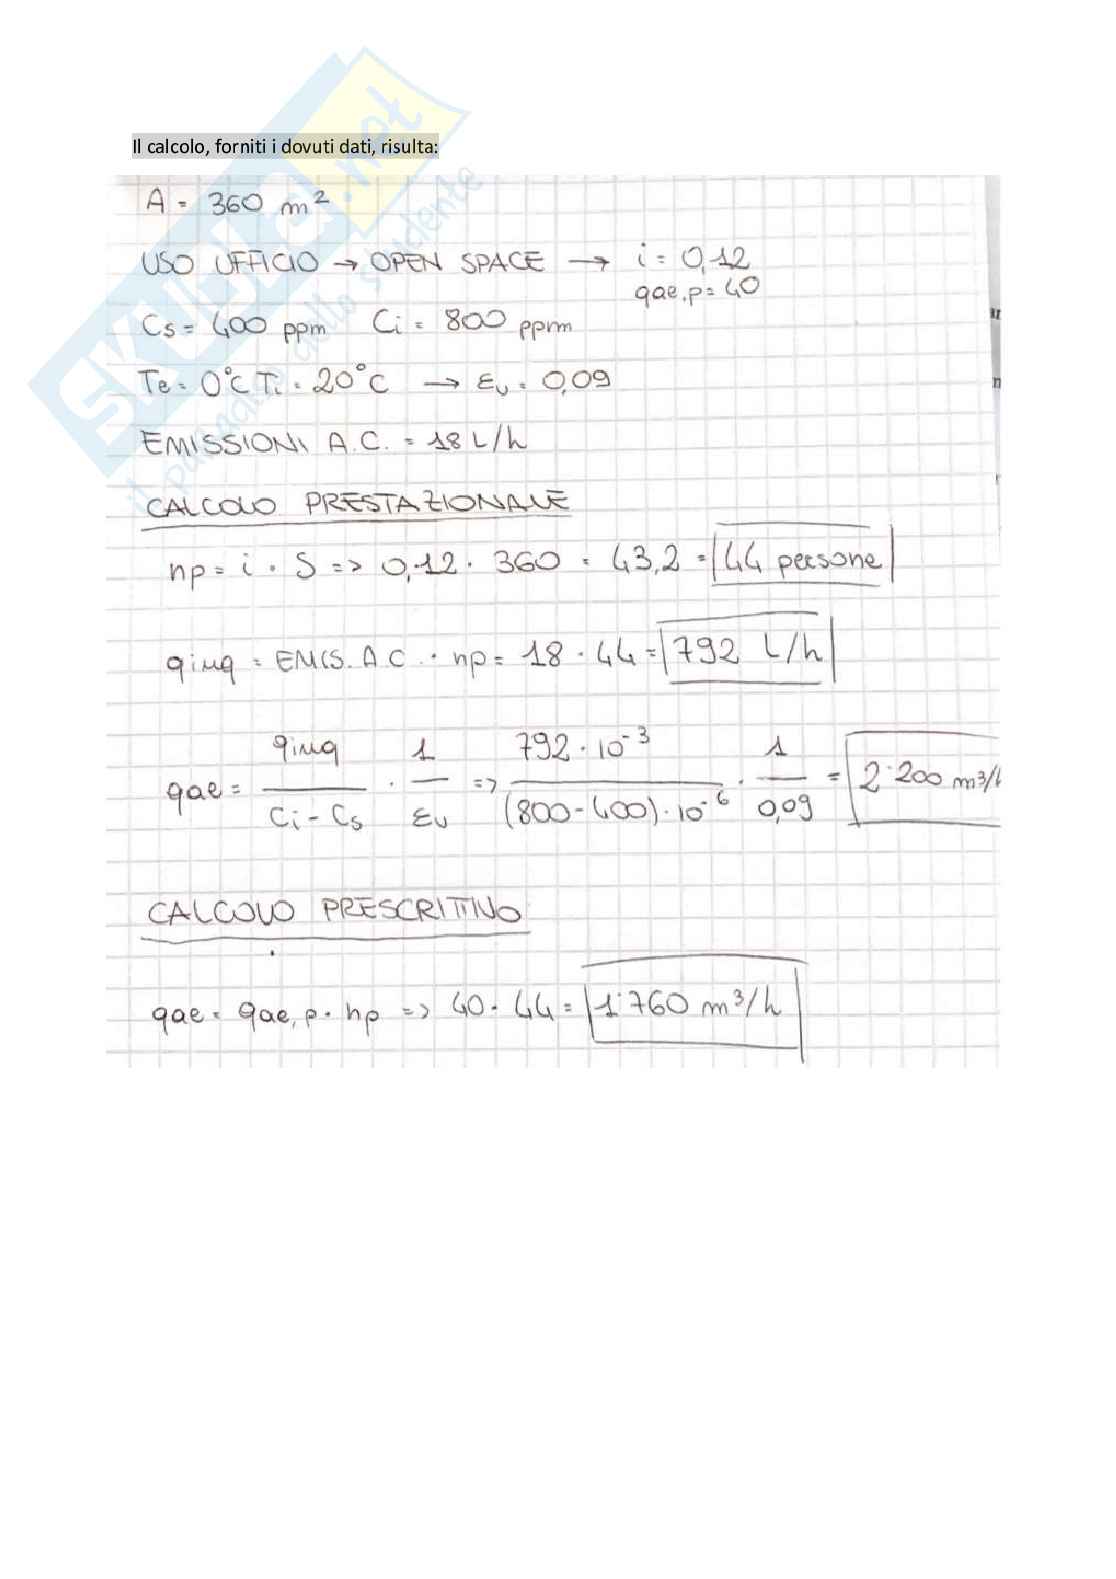 Il calcolo, forniti i dovuti dati, risulta:
A = 360 m²
USO UFFICIO → OPEN SPACE → i = 0,12
qae,p = 40
Cs = 400 ppm Ci = 800 ppm
Te = 0°C Ti = 20°C → εv = 0,09
EMISSIONI A.C. = 18 L/h
CALCOLO PRESTAZIONALE
np = i · S => 0,12 · 360 = 43,2 = 44 persone
qinq = EMIS. A.C. · np = 18 · 44 = 792 L/h
qae = qinq / (Ci - Cs) · 1 / εv => 792 · 10⁻³ / (800 - 400) · 10⁻⁶ · 1 / 0,09 = 2·200 m³/h
CALCOLO PRESCRITTIVO
qae = qae,p · np => 40 · 44 = 1·760 m³/h
SKUOLA.net
il paradiso dello studente